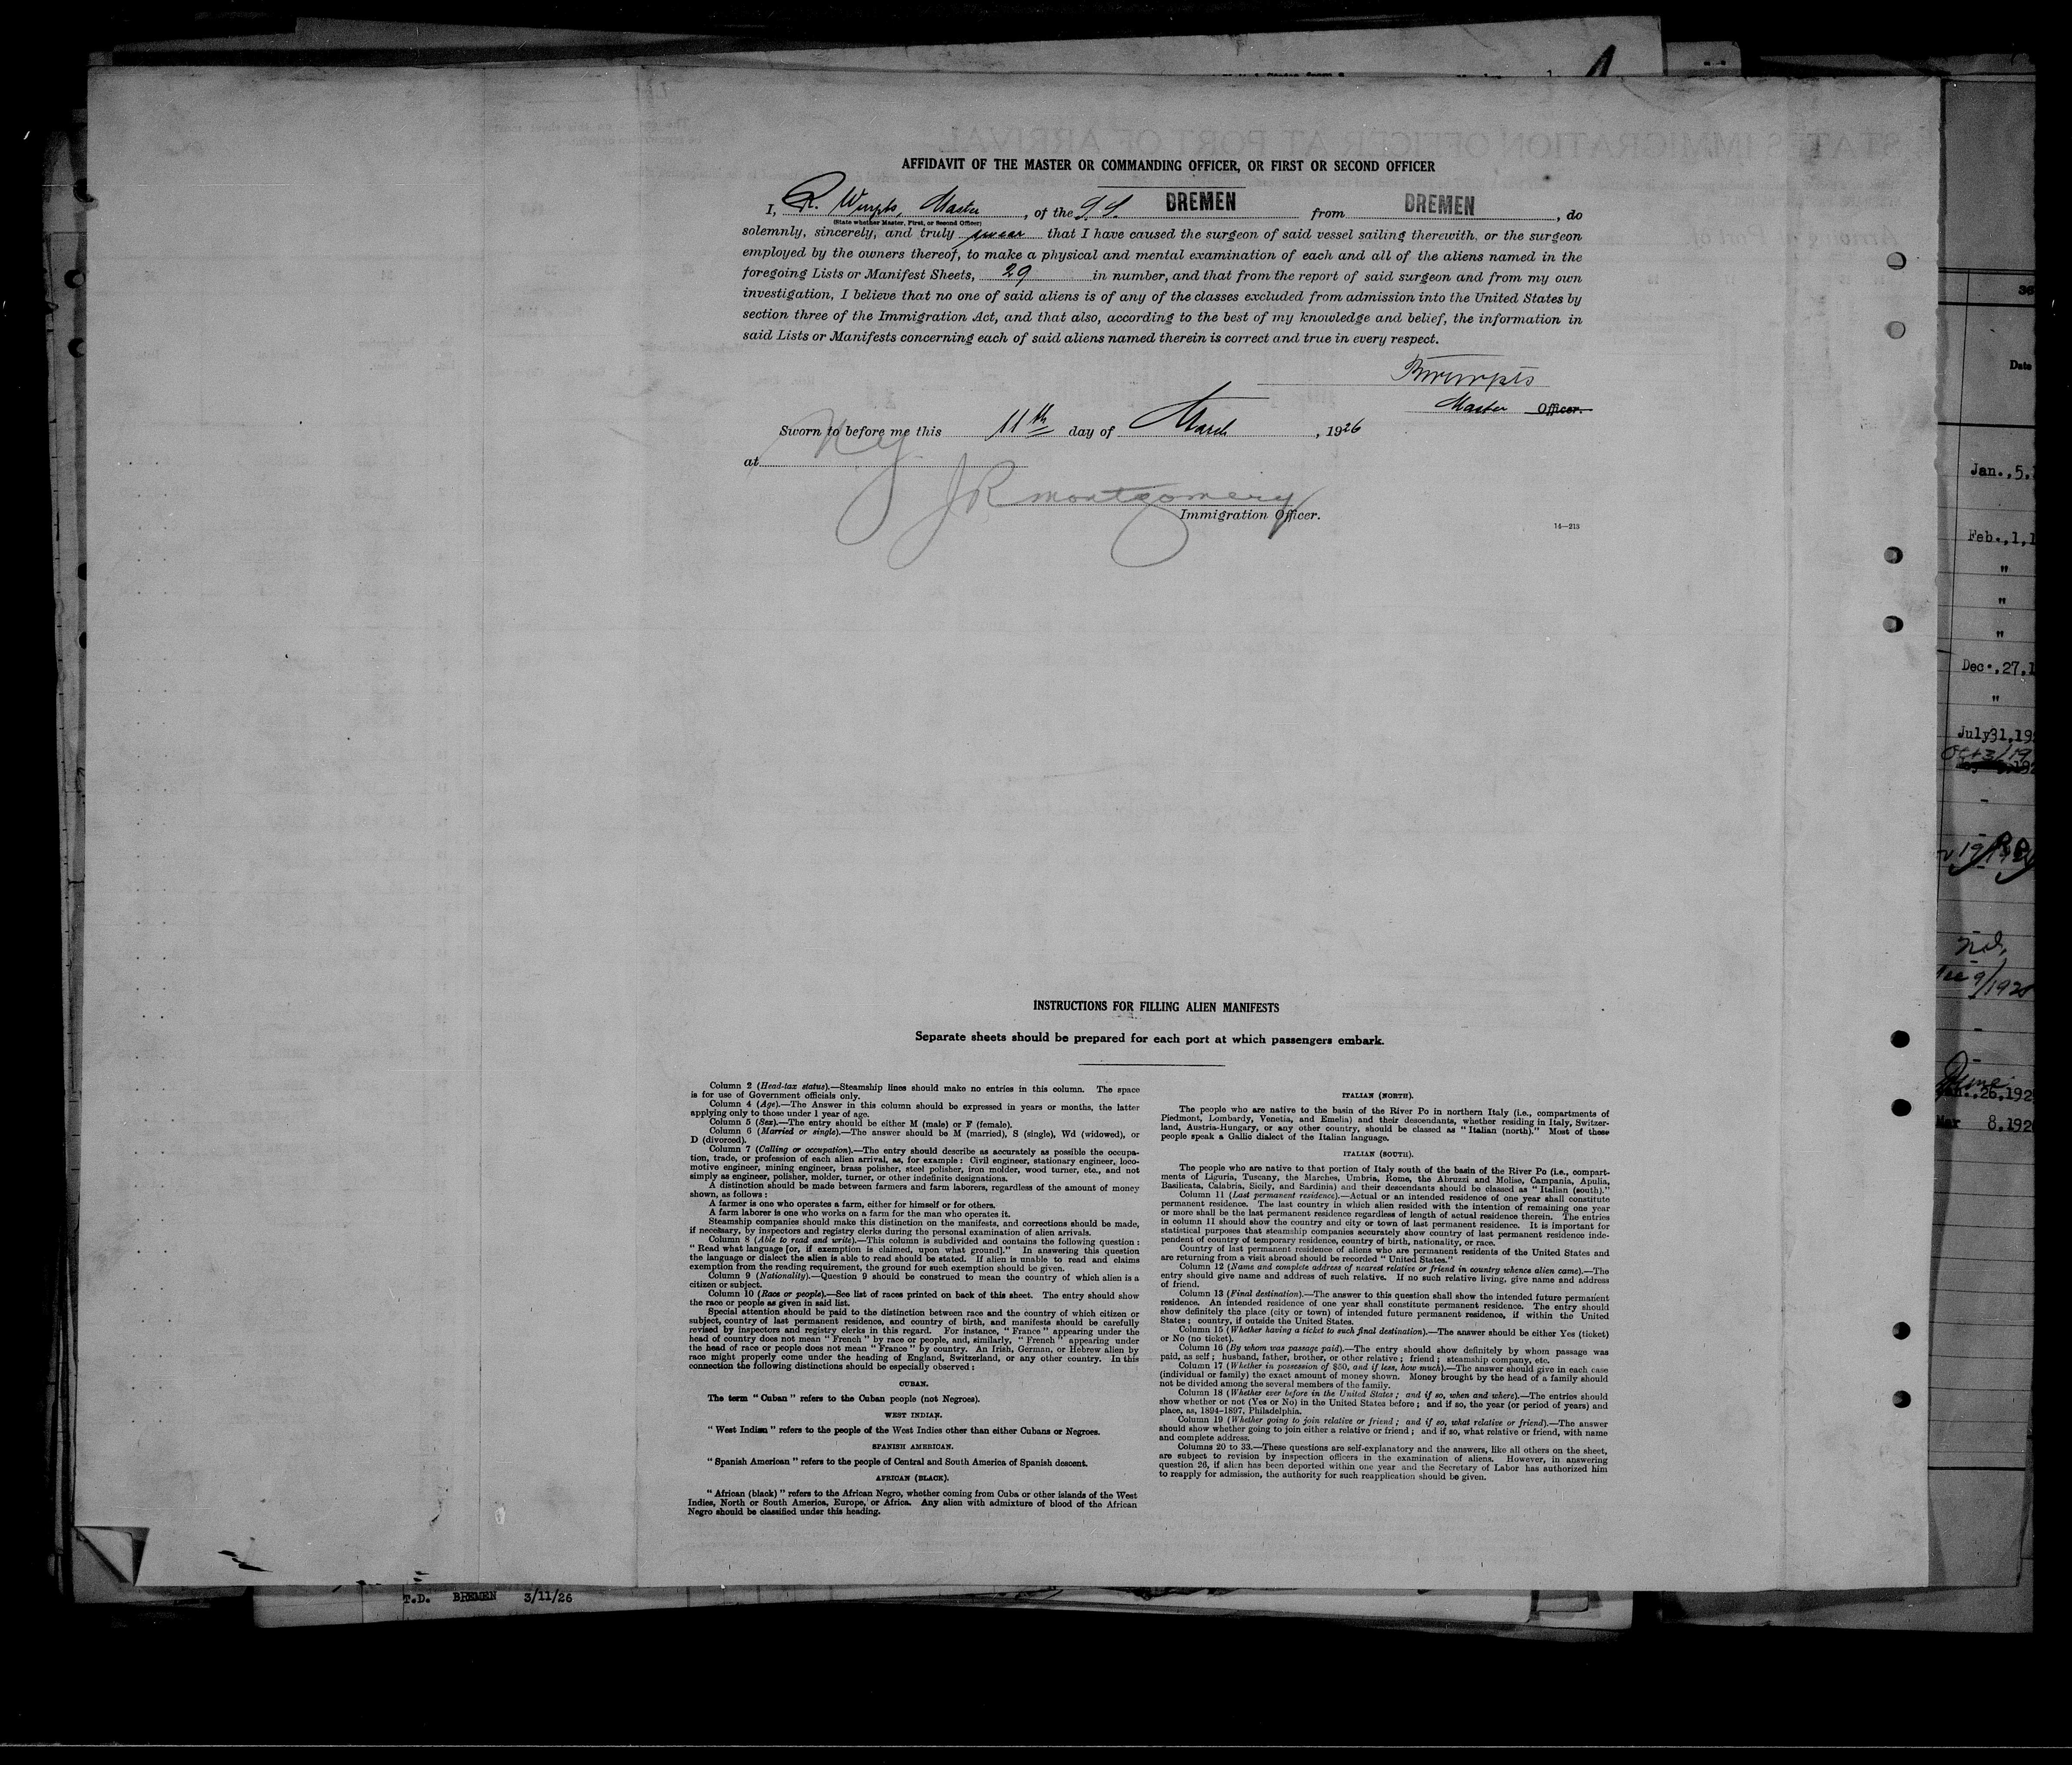 AFFIDAVIT OF THE MASTER OR COMMANDING OFFICER, OR FIRST OR SECOND OFFICER
I, R. Wurpts, Master, of the S.S. BREMEN from BREMEN, do
(State whether Master, First, or Second Officer)
solemnly, sincerely, and truly swear that I have caused the surgeon of said vessel sailing therewith, or the surgeon
employed by the owners thereof, to make a physical and mental examination of each and all of the aliens named in the
foregoing Lists or Manifest Sheets, 29 in number, and that from the report of said surgeon and from my own
investigation, I believe that no one of said aliens is of any of the classes excluded from admission into the United States by
section three of the Immigration Act, and that also, according to the best of my knowledge and belief, the information in
said Lists or Manifests concerning each of said aliens named therein is correct and true in every respect.
RWurpts
Master Officer.
Sworn to before me this 11th day of March, 1926
at NY
JR Montgomery
Immigration Officer.
14—213
INSTRUCTIONS FOR FILLING ALIEN MANIFESTS
Separate sheets should be prepared for each port at which passengers embark.
Column 2 (Head-tax status).—Steamship lines should make no entries in this column. The space
is for use of Government officials only.
Column 4 (Age).—The Answer in this column should be expressed in years or months, the latter
applying only to those under 1 year of age.
Column 5 (Sex).—The entry should be either M (male) or F (female).
Column 6 (Married or single).—The answer should be M (married), S (single), Wd (widowed), or
D (divorced).
Column 7 (Calling or occupation).—The entry should describe as accurately as possible the occupa-
tion, trade, or profession of each alien arrival, as, for example: Civil engineer, stationary engineer, loco-
motive engineer, mining engineer, brass polisher, steel polisher, iron molder, wood turner, etc., and not
simply as engineer, polisher, molder, turner, or other indefinite designations.
A distinction should be made between farmers and farm laborers, regardless of the amount of money
shown, as follows:
A farmer is one who operates a farm, either for himself or for others.
A farm laborer is one who works on a farm for the man who operates it.
Steamship companies should make this distinction on the manifests, and corrections should be made,
if necessary, by inspectors and registry clerks during the personal examination of alien arrivals.
Column 8 (Able to read and write).—This column is subdivided and contains the following question:
"Read what language [or, if exemption is claimed, upon what ground]." In answering this question
the language or dialect the alien is able to read should be stated. If alien is unable to read and claims
exemption from the reading requirement, the ground for such exemption should be given.
Column 9 (Nationality).—Question 9 should be construed to mean the country of which alien is a
citizen or subject.
Column 10 (Race or people).—See list of races printed on back of this sheet. The entry should show
the race or people as given in said list.
Special attention should be paid to the distinction between race and the country of which citizen or
subject, country of last permanent residence, and country of birth, and manifests should be carefully
revised by inspectors and registry clerks in this regard. For instance, "France" appearing under the
head of country does not mean "French" by race or people, and, similarly, "French" appearing under
the head of race or people does not mean "France" by country. An Irish, German, or Hebrew alien by
race might properly come under the heading of England, Switzerland, or any other country. In this
connection the following distinctions should be especially observed:
CUBAN.
The term "Cuban" refers to the Cuban people (not Negroes).
WEST INDIAN.
"West Indian" refers to the people of the West Indies other than either Cubans or Negroes.
SPANISH AMERICAN.
"Spanish American" refers to the people of Central and South America of Spanish descent.
AFRICAN (BLACK).
"African (black)" refers to the African Negro, whether coming from Cuba or other islands of the West
Indies, North or South America, Europe, or Africa. Any alien with admixture of blood of the African
Negro should be classified under this heading.
ITALIAN (NORTH).
The people who are native to the basin of the River Po in northern Italy (i.e., compartments of
Piedmont, Lombardy, Venetia, and Emelia) and their descendants, whether residing in Italy, Switzer-
land, Austria-Hungary, or any other country, should be classed as "Italian (north)." Most of these
people speak a Gallic dialect of the Italian language.
ITALIAN (SOUTH).
The people who are native to that portion of Italy south of the basin of the River Po (i.e., compart-
ments of Liguria, Tuscany, the Marches, Umbria, Rome, the Abruzzi and Molise, Campania, Apulia,
Basilicata, Calabria, Sicily, and Sardinia) and their descendants should be classed as "Italian (south)."
Column 11 (Last permanent residence).—Actual or an intended residence of one year shall constitute
permanent residence. The last country in which alien resided with the intention of remaining one year
or more shall be the last permanent residence regardless of length of actual residence therein. The entries
in column 11 should show the country and city or town of last permanent residence. It is important for
statistical purposes that steamship companies accurately show country of last permanent residence inde-
pendent of country of temporary residence, country of birth, nationality, or race.
Country of last permanent residence of aliens who are permanent residents of the United States and
are returning from a visit abroad should be recorded "United States."
Column 12 (Name and complete address of nearest relative or friend in country whence alien came).—The
entry should give name and address of such relative. If no such relative living, give name and address
of friend.
Column 13 (Final destination).—The answer to this question shall show the intended future permanent
residence. An intended residence of one year shall constitute permanent residence. The entry should
show definitely the place (city or town) of intended future permanent residence, if within the United
States; country, if outside the United States.
Column 15 (Whether having a ticket to such final destination).—The answer should be either Yes (ticket)
or No (no ticket).
Column 16 (By whom was passage paid).—The entry should show definitely by whom passage was
paid, as self; husband, father, brother, or other relative; friend; steamship company, etc.
Column 17 (Whether in possession of $50, and if less, how much).—The answer should give in each case
(individual or family) the exact amount of money shown. Money brought by the head of a family should
not be divided among the several members of the family.
Column 18 (Whether ever before in the United States; and if so, when and where).—The entries should
show whether or not (Yes or No) in the United States before; and if so, the year (or period of years) and
place, as, 1894-1897, Philadelphia.
Column 19 (Whether going to join relative or friend; and if so, what relative or friend).—The answer
should show whether going to join either a relative or friend; and if so, what relative or friend, with name
and complete address.
Columns 20 to 33.—These questions are self-explanatory and the answers, like all others on the sheet,
are subject to revision by inspection officers in the examination of aliens. However, in answering
question 26, if alien has been deported within one year and the Secretary of Labor has authorized him
to reapply for admission, the authority for such reapplication should be given.
Date
Jan.,5,
Feb.,1,1
"
"
"
Dec.,27,1
"
July31,19
26,192
Mar 8,192
T.D. BREMEN 3/11/26